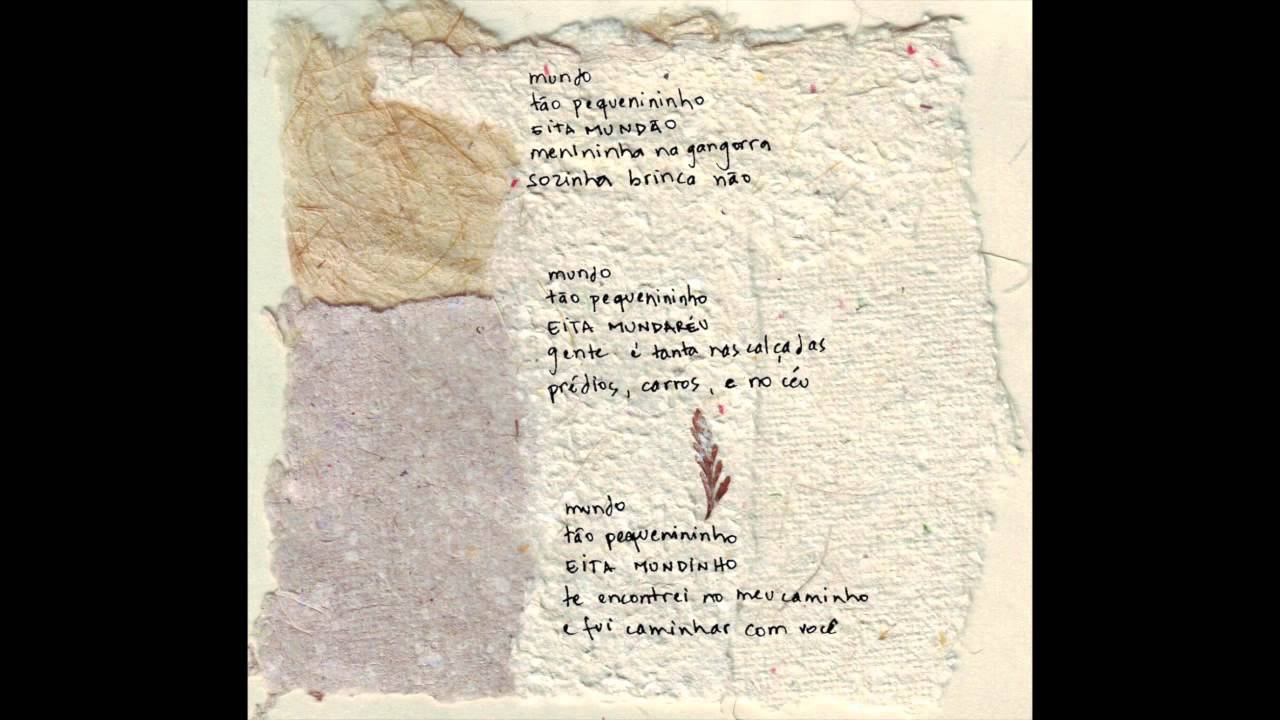 mundo
tão pequenininho
EITA MUNDÃO
menininha na gangorra
sozinha brinca não
mundo
tão pequenininho
EITA MUNDARÉU
gente é tanta nas calçadas
prédios, carros, e no céu
mundo
tão pequenininho
EITA MUNDINHO
te encontrei no meu caminho
e fui caminhar com você